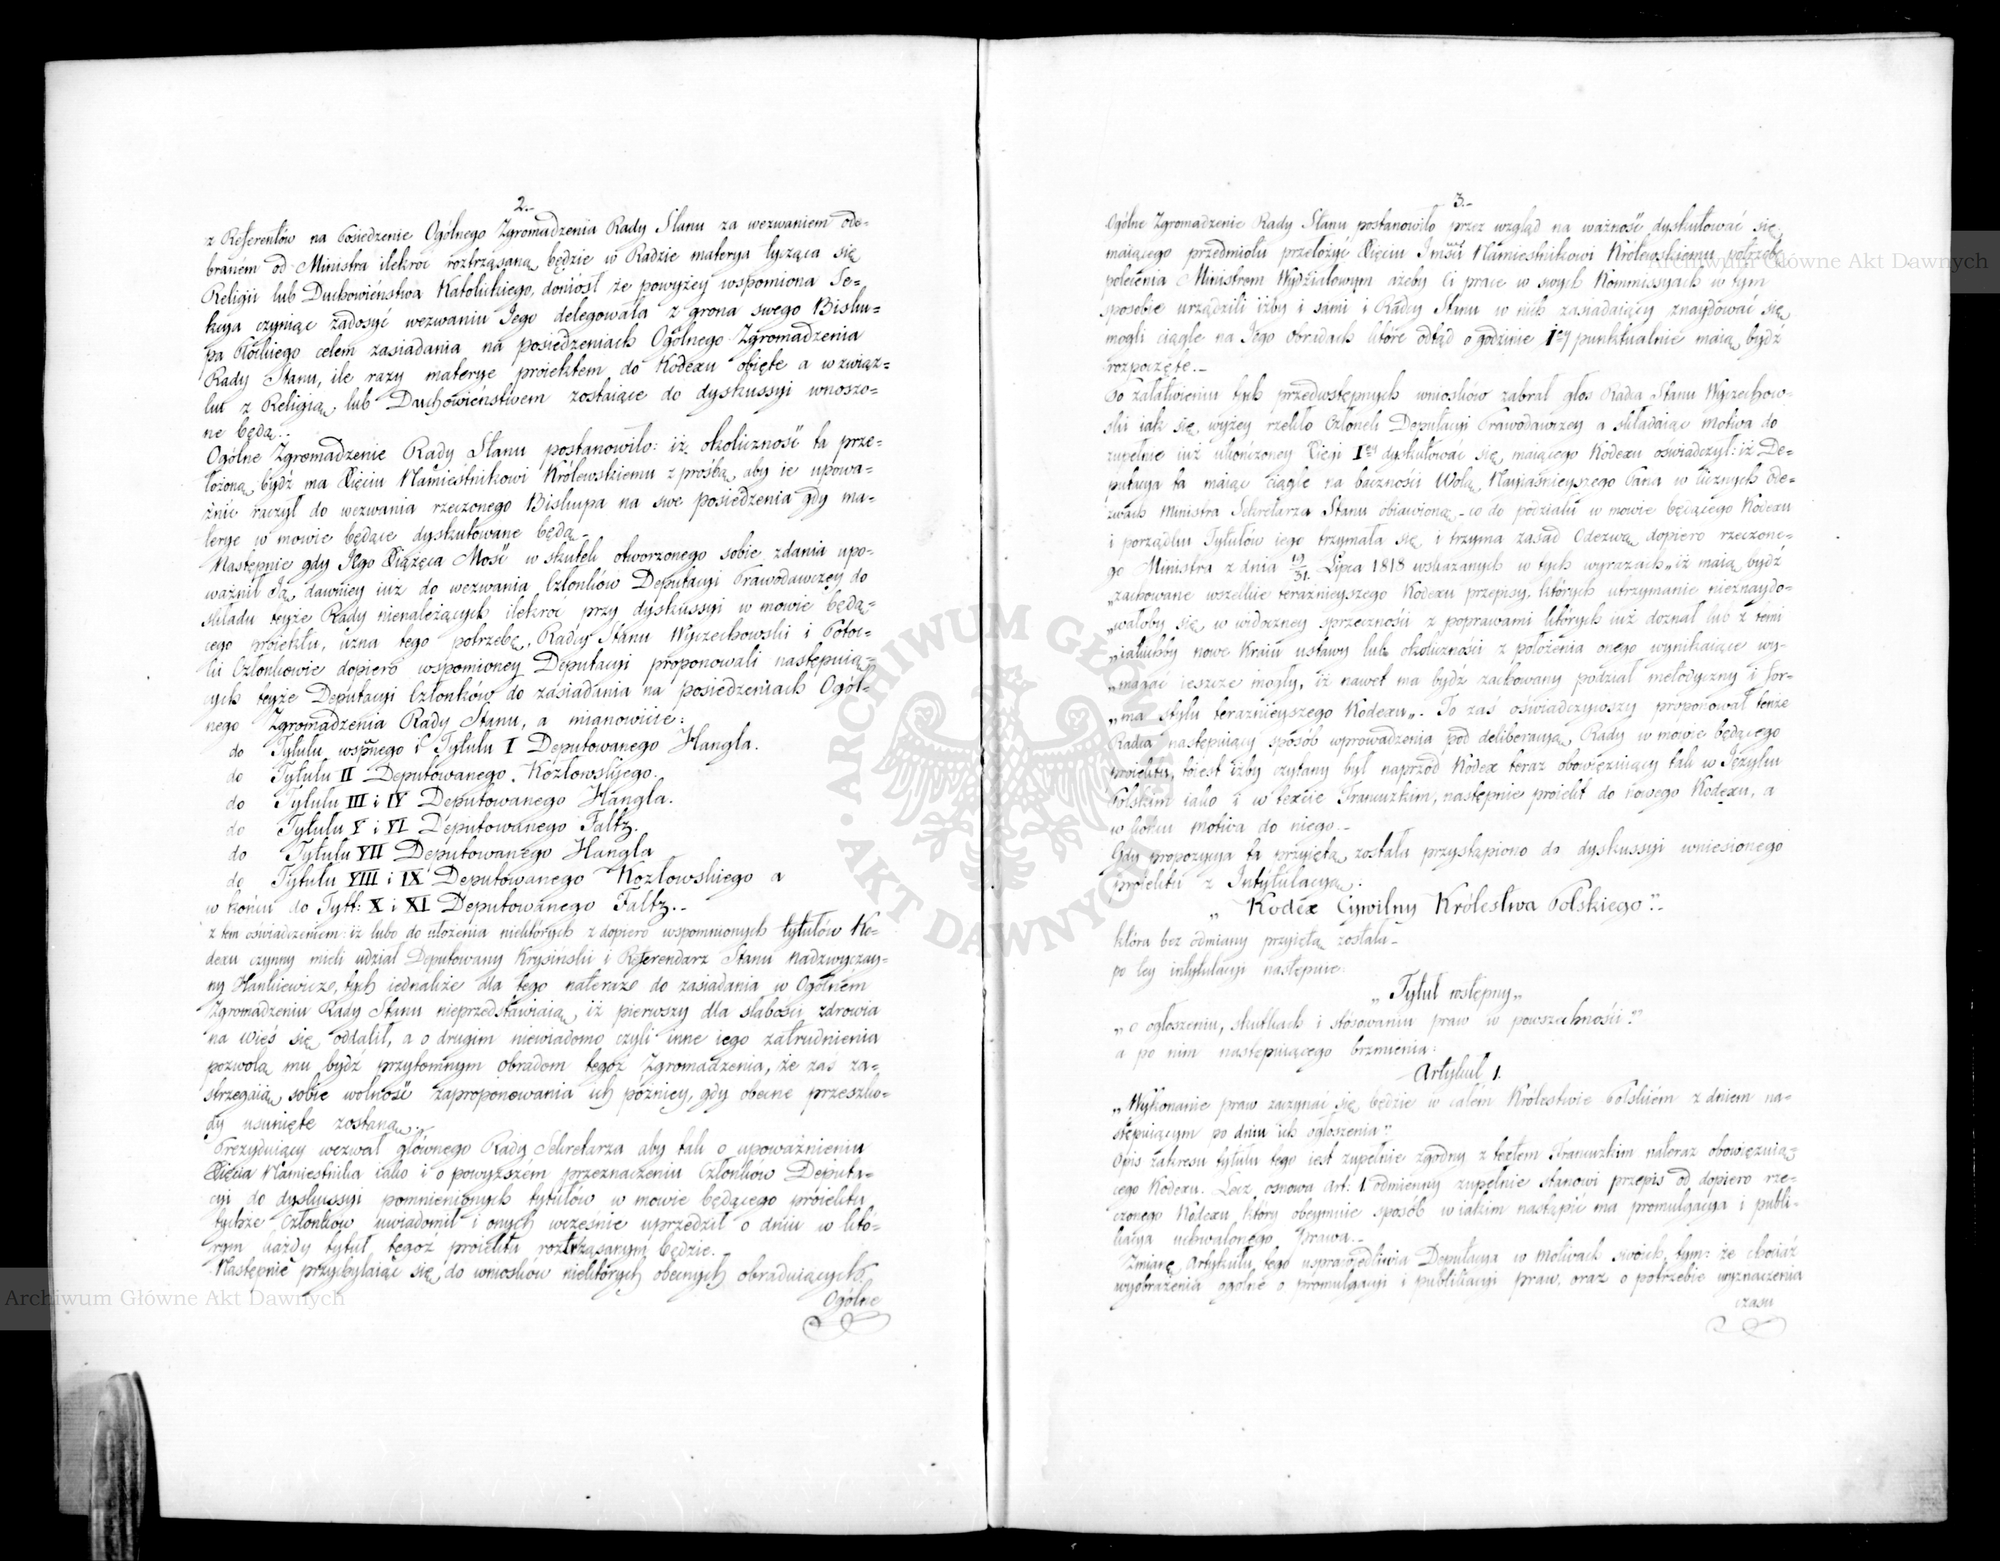 2.-
z Referentów na Posiedzenie Ogólnego Zgromadzenia Rady Stanu za wezwaniem ode-
braném od Ministra ilekroć roztrząsaną będzie w Radzie materya tycząca się
Religii lub Duchowieństwa Katolickiego, doniósł że powyżey wspomiona Se-
kcya czyniąc zadosyć wezwaniu Jego delegowała z grona swego Bisku-
pa Płockiego celem zasiadania na posiedzeniach Ogólnego Zgromadzenia
Rady Stanu, ile razy materye proiektem do Kodexu obięte a w związ-
ku z Religią, lub Duchowieństwem zostaiące do dyskussyi wnoszo-
ne będą.-
Ogólne Zgromadzenie Rady Stanu postanowiło: iż okoliczność ta prze-
łożoną bydź ma Xięciu Namiestnikowi Królewskiemu z prośbą, aby ie upowa-
żnić raczył do wezwania rzeczonego Biskupa na swe posiedzenia gdy ma-
terye w mowie będące dyskutowane będą.-
Następnie gdy Jego Xiążęca Mość w skutek otworzonego sobie zdania upo-
ważnił Ją, dawniey iuż do wezwania Członków Deputacyi Prawodawczey do
składu teyże Rady nienależących, ilekroć przy dyskussyi w mowie będą-
cego proiektu, uzna tego potrzebę, Radcy Stanu Wyczechowski i Potoc-
ki Członkowie dopiero wspomioney Deputacyi proponowali następuią-
cych teyże Deputacyi Członków do zasiadania na posiedzeniach Ogól-
nego Zgromadzenia Rady Stanu, a mianowicie:
do Tytułu wspnego i Tytułu I Deputowanego Hangla.
do Tytułu II Deputowanego Kozłowskiego.
do Tytułu III i IV Deputowanego Hangla.
do Tytułu V i VI Deputowanego Faltz.
do Tytułu VII Deputowanego Hangla
do Tytułu VIII i IX Deputowanego Kozłowskiego a
w końcu do Tytt: X i XI Deputowanego Faltz.-
z tem oświadczeniem: iż lubo do ułożenia niektórych z dopiero wspomnionych tytułów Ko-
dexu czynny mieli udział Deputowany Krysiński i Referendarz Stanu Nadzwyczay-
ny Hankiewicz, tych iednakże dla tego nateraz do zasiadania w Ogólnem
Zgromadzeniu Rady Stanu nieprzedstawiaią, iż pierwszy dla słabości zdrowia
na wieś się oddalił, a o drugim niewiadomo czyli inne iego zatrudnienia
pozwolą mu bydź przytomnym obradom tegoż Zgromadzenia, że zaś za-
strzegaią sobie wolność zaproponowania ich późniey, gdy obecne przeszko-
dy usunięte zostaną.-
Prezyduiący wezwał głównego Rady Sekretarza aby tak o upoważnieniu
Xięcia Namiestnika iako i o powyższém przeznaczeniu Członków Deputa-
cyi do dyskussyi pomnienionych tytułów w mowie będącego proiektu
tychże Członków uwiadomił i onych wcześnie uprzedził o dniu w któ-
rym każdy tytuł tegoż proiektu roztrząsanym będzie.
Następnie przychylaiąc się do wniosków niektórych obecnych obraduiących,
Ogólne
3.-
Ogólne Zgromadzenie Rady Stanu postanowiło przez wzgląd na ważność dyskutować się
maiącego przedmiotu przełożyć Xięciu Jmści Namiestnikowi Królewskiemu potrzebę
polecenia Ministrom Wydziałowym ażeby Ci prace w swych Kommissyach w tym
sposobie urządzili iżby i sami i Radcy Stanu w nich zasiadaiący znaydować się
mogli ciągle na Jego obradach które odtąd o godzinie 1ey punktualnie maią bydź
rozpoczęte.-
Po załatwieniu tych przedwstępnych wniosków zabrał głos Radca Stanu Wyczechow-
ski iak się wyżey rzekło Członek Deputacyi Prawodawczey a składaiąc motiva do
zupełnie iuż ukończoney Xięgi Iey dyskutować się maiącego Kodexu oświadczył: iż De-
putacya ta maiąc ciągle na baczności Wolą Nayiaśnieyszego Pana w licznych ode-
zwach Ministra Sekretarza Stanu obiawioną - co do podziału w mowie będącego Kodexu
i porządku Tytułów iego trzymała się i trzyma zasad Odezwą dopiero rzeczone-
go Ministra z dnia 19/31. Lipca 1818 wskazanych w tych wyrazach „iż maią bydź
„zachowane wszelkie teraźnieyszego Kodexu przepisy, których utrzymanie nieznaydo-
„wałoby się w widoczney sprzeczności z poprawami których iuż doznał lub z temi
„iakichby nowe Kraiu ustawy lub okoliczności z położenia onego wynikaiące wy-
„magać ieszcze mogły, iż nawet ma bydź zachowany podział metodyczny i for-
„ma stylu teraźnieyszego Kodexu„. To zaś oświadczywszy proponował tenże
Radca następuiący sposób wprowadzenia pod deliberacyą Rady w mowie będącego
proiektu, toiest iżby czytany był naprzód Kodex teraz obowięzuiący tak w Języku
Polskim iako i w texcie Francuzkim, następnie proiekt do nowego Kodexu, a
w końcu motiva do niego.-
Gdy propozycya ta przyięta została przystąpiono do dyskussyi wniesionego
proiektu z Intytulacyą:
„ Kodex Cywilny Królestwa Polskiego".-
która bez odmiany przyięta została.-
po tey intytulacyi następuie:
„ Tytuł wstępny„
„ o ogłoszeniu, skutkach i stosowaniu praw w powszechności."
a po nim następuiącego brzmienia:
Artykuł 1.
„ Wykonanie praw zaczynać się będzie w całém Królestwie Polskiém z dniem na-
stępuiącym po dniu ich ogłoszenia"
Opis zakresu tytułu tego iest zupełnie zgodny z textem Francuzkim nateraz obowięzuią-
cego Kodexu. Lecz osnowa Art: 1. odmienny zupełnie stanowi przepis od dopiero rze-
czonego Kodexu który obeymuie sposób w iakim nastąpić ma promulgacya i publi-
kacya uchwalonego Prawa.-
Zmianę Artykułu tego usprawiedliwia Deputacya w Motivach swoich tym: że chociaż
wyobrażenia ogólne o promulgacyi i publikacyi praw, oraz o potrzebie wyznaczenia
czasu
Archiwum Główne Akt Dawnych
Archiwum Główne Akt Dawnych
ARCHIWUM GŁÓWNE AKT DAWNYCH